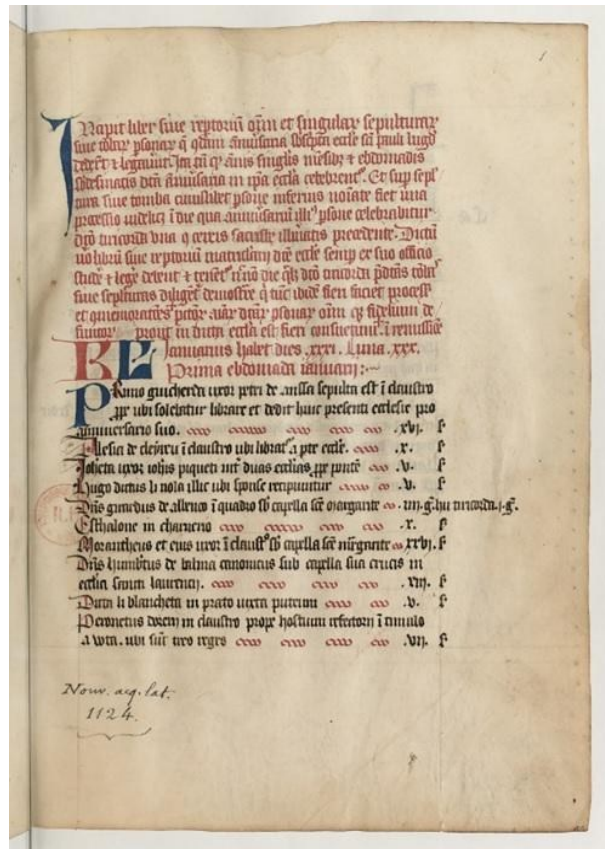 1
Incipit liber sive reptoriu oim et singular sepulturar
sive tobar psonar q qdam anivsaria sbscpta eccle sci pauli lugd
dederut et legaverut. Ita tn q anis singlis mesibz et ebdomadis
sbdesignatis dcta anivsaria in ipa eccla celebrent. Et sup sepl
tura sive tomba cuiuslibet psone inferius noiate fiet una
processio videlicz i die qua anivsariu illi psone celebrabitur
dco turicorda una cz cereis sacriste illuiatis precedente. Dictu
vo libru sive reptoriu matriclarii dce eccle semp ex suo officio
et legere debent et tenet
sive sepulturas diliget demostre q tuc ibide fieri faciet process
fidelium de
functor prout in dicta eccla est fieri consuetum i remissione
KL Januarius habet dies .xxxi. Luna .xxx.
Prima ebdomada ianuarii :~
Primo guicherda uxor petri de anssa sepulta est i claustro
ppe ubi solebatur librare et dedit huic presenti ecclesie pro
anniversario suo. .xvi. s
Alesia de cleyrieu i claustro ubi librat a pte eccle. .x. s
Joheta uxor iohis piqueti int duas ecclias ppe ponte .v. s
Hugo dictus li nola illic ubi sponse recipiuntur .v. s
Dns girardus de alleuco i quadro sb capella sce margarite .iiii. g. hu turicorda .i. g.
Esthalone in charnerio .x. s
Morantheus et eius uxor i claust sb capella sce margarite xxvi. s
Dns humbtus de balma canonicus sub capella sua crucis in
ecclia sancti laurencii. .xiii. s
Dicta li blancheta in prato iuxta puteum .v. s
Peronetus dorerii in claustro prope hostium refectorii i tumulo
a vota. ubi sut tres reges .vii. s
Nouv. acq. lat.
1124.